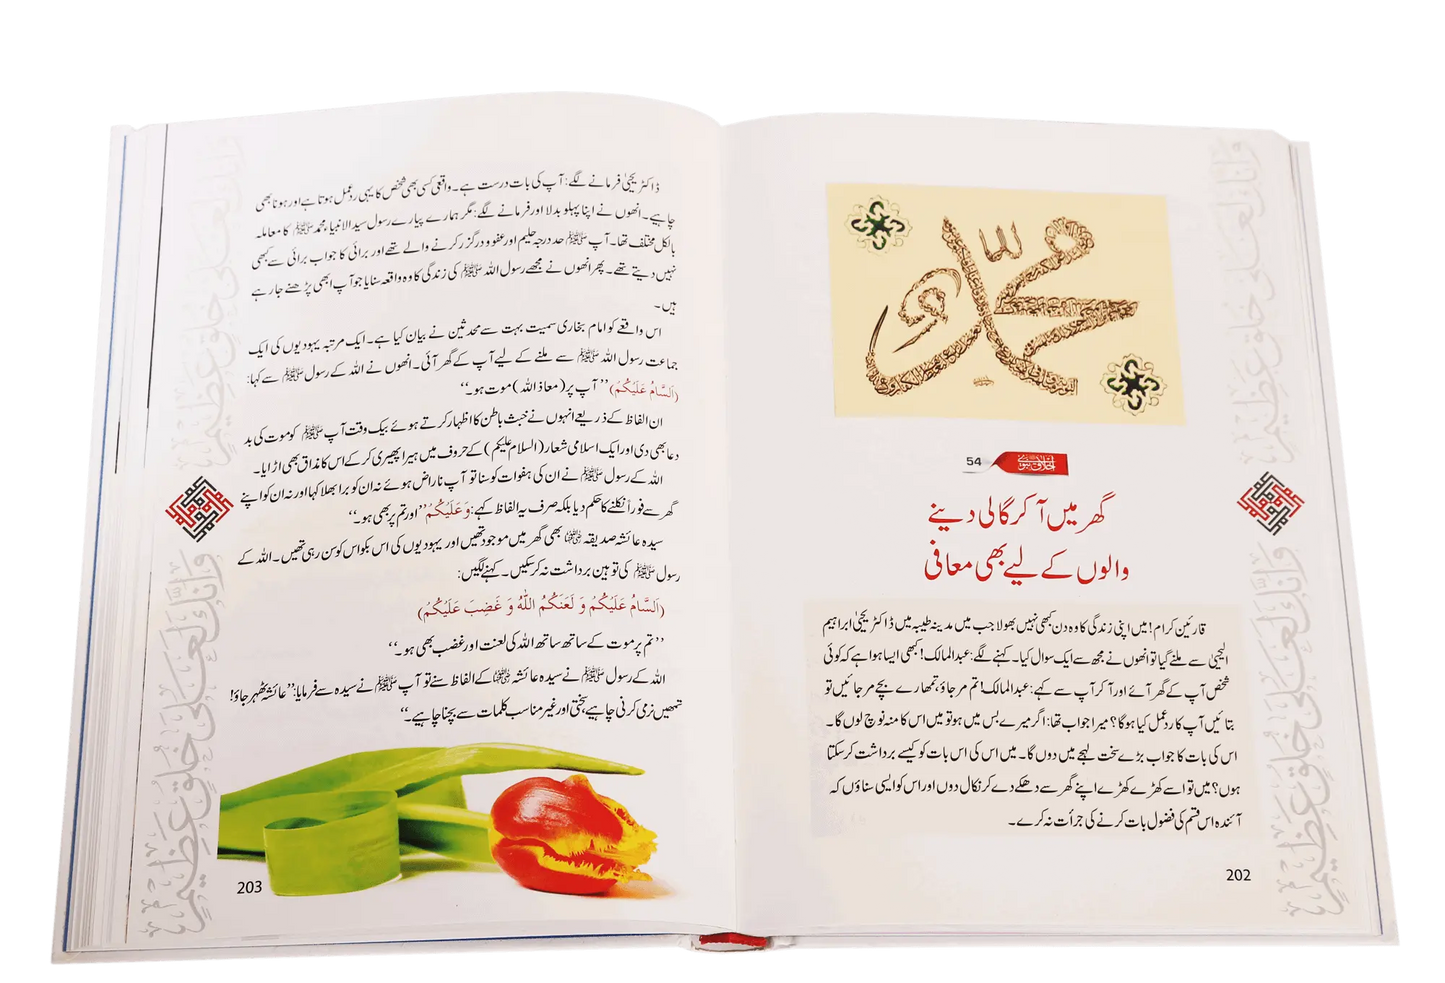 محمد
54
اخلاق نبوی
گھر میں آ کر گالی دینے
والوں کے لیے بھی معافی
قارئین کرام! میں اپنی زندگی کا وہ دن کبھی نہیں بھولا جب میں مدینہ طیبہ میں ڈاکٹر یحییٰ ابراہیم
الیحییٰ سے ملنے گیا تو انھوں نے مجھ سے ایک سوال کیا۔ کہنے لگے: عبدالمالک! کبھی ایسا ہوا ہے کہ کوئی
شخص آپ کے گھر آئے اور آ کر آپ سے کہے: عبدالمالک! تم مر جاؤ، تمھارے بچے مر جائیں تو
بتائیں آپ کا ردعمل کیا ہوگا؟ میرا جواب تھا: اگر میرے بس میں ہو تو میں اس کا منہ نوچ لوں گا۔
اس کی بات کا جواب بڑے سخت لہجے میں دوں گا۔ میں اس کی اس بات کو کیسے برداشت کر سکتا
ہوں؟ میں تو اسے کھڑے کھڑے اپنے گھر سے دھکے دے کر نکال دوں اور اس کو ایسی سناؤں کہ
آئندہ اس قسم کی فضول بات کرنے کی جرأت نہ کرے۔
202
وَإِنَّكَ لَعَلَىٰ خُلُقٍ عَظِيمٍ
وَإِنَّكَ لَعَلَىٰ خُلُقٍ عَظِيمٍ
ڈاکٹر یحییٰ فرمانے لگے: آپ کی بات درست ہے۔ واقعی کسی بھی شخص کا یہی ردعمل ہوتا ہے اور ہونا بھی
چاہیے۔ انھوں نے اپنا پہلو بدلا اور فرمانے لگے: مگر ہمارے پیارے رسول سید الانبیاء محمد ﷺ کا معاملہ
بالکل مختلف تھا۔ آپ ﷺ حد درجہ حلیم اور عفو و درگزر کرنے والے تھے اور برائی کا جواب برائی سے بھی
نہیں دیتے تھے۔ پھر انھوں نے مجھے رسول اللہ ﷺ کی زندگی کا وہ واقعہ سنایا جو آپ ابھی پڑھنے جا رہے
ہیں۔
اس واقعے کو امام بخاری سمیت بہت سے محدثین نے بیان کیا ہے۔ ایک مرتبہ یہودیوں کی ایک
جماعت رسول اللہ ﷺ سے ملنے کے لیے آپ کے گھر آئی۔ انھوں نے اللہ کے رسول ﷺ سے کہا:
(اَلسَّامُ عَلَيْكُمْ) ’’آپ پر (معاذ اللہ) موت ہو۔‘‘
ان الفاظ کے ذریعے انہوں نے خبث باطن کا اظہار کرتے ہوئے بیک وقت آپ ﷺ کو موت کی بد
دعا بھی دی اور ایک اسلامی شعار (السلام علیکم) کے حروف میں ہیرا پھیری کر کے اس کا مذاق بھی اڑایا۔
اللہ کے رسول ﷺ نے ان کی ہفوات کو سنا تو آپ نا راض ہوئے نہ ان کو برا بھلا کہا اور نہ ان کو اپنے
گھر سے فوراً نکلنے کا حکم دیا بلکہ صرف یہ الفاظ کہے: وَعَلَيْكُمْ ’’اور تم پر بھی ہو۔‘‘
سیدہ عائشہ صدیقہ ؓ بھی گھر میں موجود تھیں اور یہودیوں کی اس بکواس کو سن رہی تھیں۔ اللہ کے
رسول ﷺ کی توہین برداشت نہ کر سکیں۔ کہنے لگیں:
(اَلسَّامُ عَلَيْكُمْ وَ لَعَنَكُمُ اللّٰهُ وَ غَضِبَ عَلَيْكُمْ)
’’تم پر موت کے ساتھ ساتھ اللہ کی لعنت اور غضب بھی ہو۔‘‘
اللہ کے رسول ﷺ نے سیدہ عائشہ ؓ کے الفاظ سنے تو آپ ﷺ نے سیدہ سے فرمایا: ’’عائشہ ٹھہر جاؤ!
تمھیں نرمی کرنی چاہیے، سختی اور غیر مناسب کلمات سے بچنا چاہیے۔‘‘
203
وَإِنَّكَ لَعَلَىٰ خُلُقٍ عَظِيمٍ
وَإِنَّكَ لَعَلَىٰ خُلُقٍ عَظِيمٍ